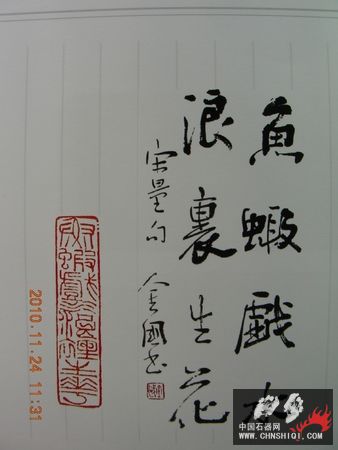 魚蝦戲
浪裏生花
宋量句
金國书
2010.11.24 11:31
中国石器网
WWW.CHNSHIQI.COM